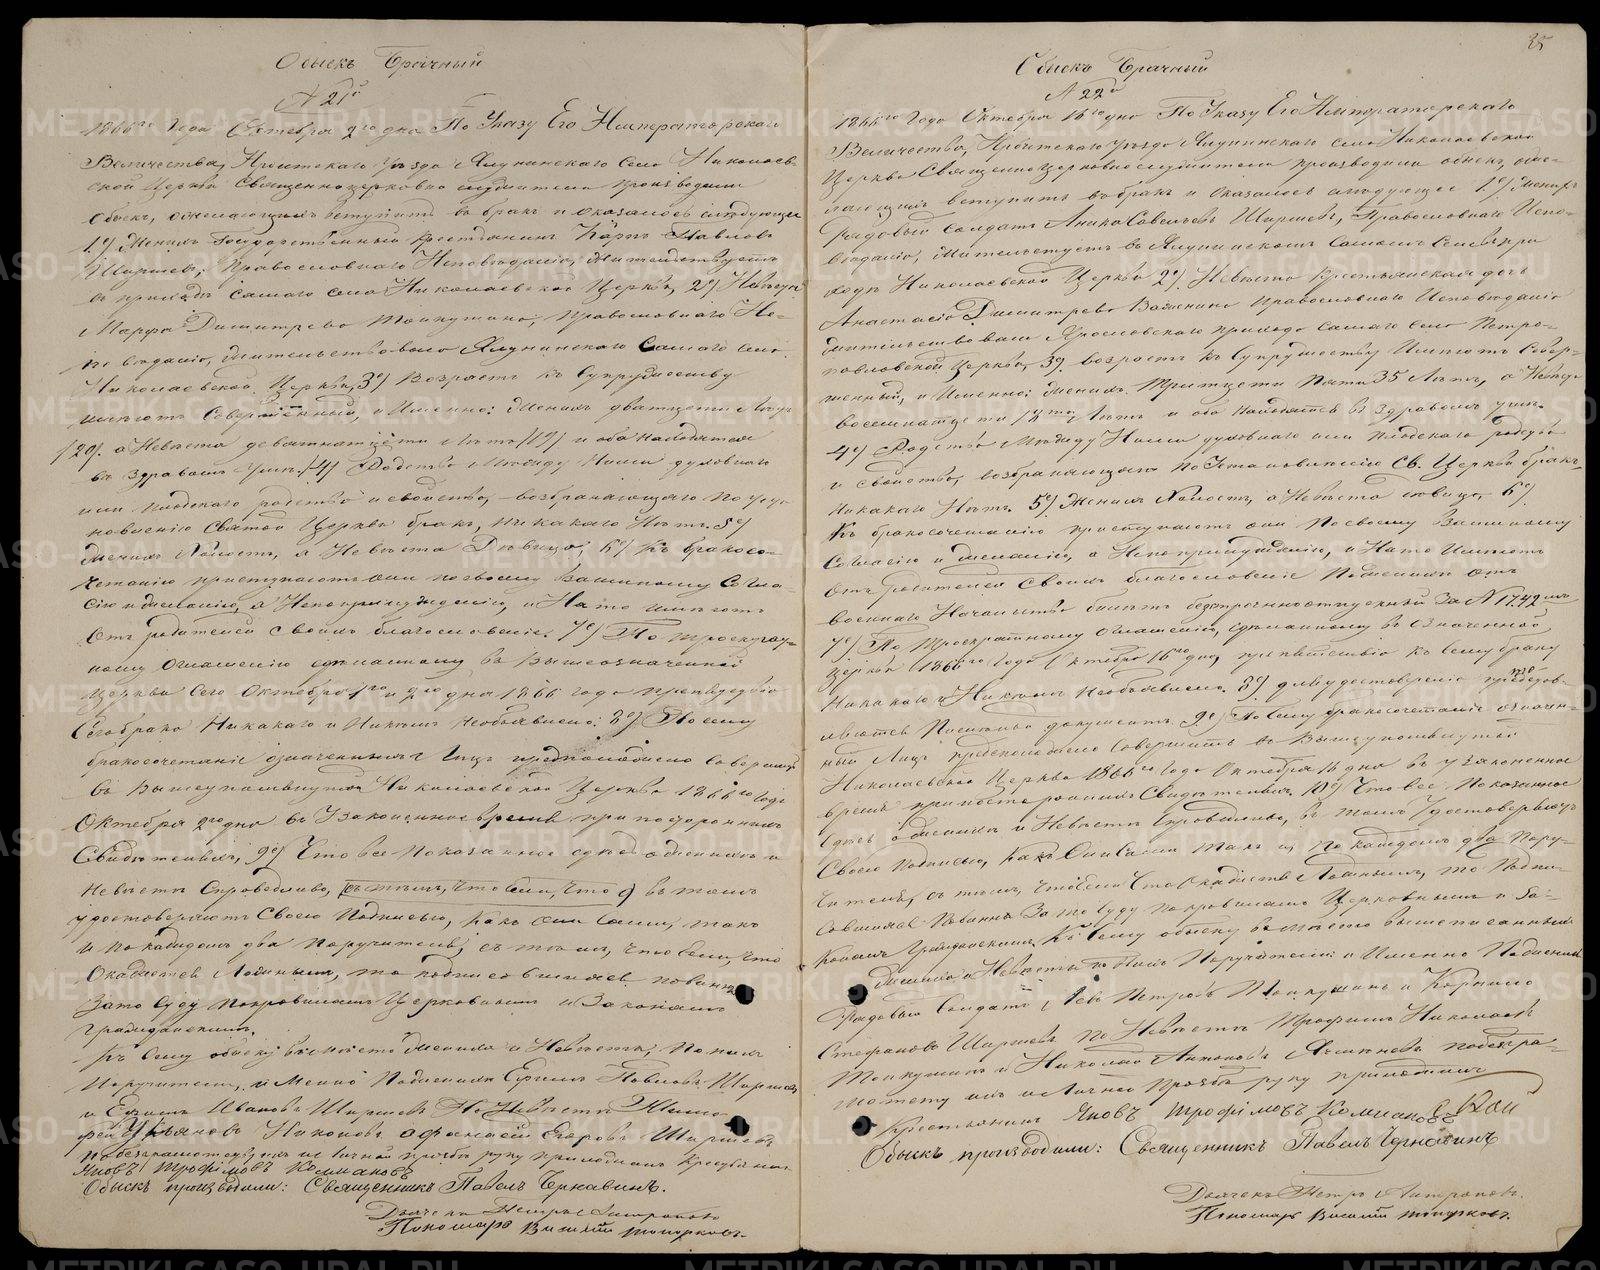 Обыскъ Брачный
№ 21й
1866го Года Октября 2го дня По Указу Его Императорскаго
Величества, Ирбитскаго уѣзда Ялунинскаго Села Николаев-
ской Церкви Священноцерковно служители производили
обыскъ, о желающихъ вступить въ бракъ и оказалось слѣдующее
1е/ Женихъ Государственный крестьянинъ Карпъ Павловъ
Ширшевъ, Православнаго Исповѣданія, Жительствуетъ
въ приходѣ самаго села Николаевской Церкви, 2е/ Невѣста
Марфа Димитрева Топкушина, Православнаго Ис-
повѣданія, жительствовала Ялунинскаго Самаго села
Николаевской Церкви, 3е/ Возрастъ къ Супружеству
имѣютъ Совершенный, и Именно: Женихъ дватцети лѣтъ
/20/. а Невѣста девятнатцети лѣтъ /19/ и оба находятся
въ Здравомъ умѣ. /4/ Родства между Ними духовнаго
или плотскаго родства и свойства, возбраняющаго по уста-
новленію Святой Церкви бракъ, никакаго Нѣтъ. 5е/
Женихъ Холостъ, а Невѣста Дѣвица; 6е/ Къ бракосо-
четанію приступаютъ они по своему Взаимному Согла-
сію и желанію, а Непопринужденію, и На то имѣютъ
Отъ родителей своихъ благословеніе. 7е/ По троекрат-
ному оглашенію сдѣланному въ Вышеозначенной
Церкви Сего Октября 1го и 2го дня 1866 года препядствія
Сего брака Никакаго и Никѣмъ необъявлено: 8е/ По сему
бракосочетаніе означенныхъ Лицъ предположено Совершить
въ Вышеупомянутой Николаевской Церкви 1866го Года
Октября 2го дня въ Узаконенное время при постороннихъ
Свидѣтеляхъ, 9е/ Что все показанное здѣсь о женихѣ и
Невѣстѣ Справедливо, (съ тѣмъ, что если, что) въ томъ
удостоверяютъ Своею Подписью, какъ они сами, такъ
и по каждомъ два поручителя, съ тѣмъ, что если, что
Окажется Ложнымъ, то подписавшіеся повинны
Зато Суду по правиламъ Церковнымъ и Законамъ
Гражданскимъ.
Къ Сему обыску вмѣсто жениха и Невѣсты, По нихъ
Поручители, и Менно По женихѣ Ефимъ Павловъ Ширшевъ
и Ефимъ Ивановъ Ширшевъ По Невѣстѣ
Никоновъ Афанасей Егоровъ Ширшевъ,
по безграмотству ихъ и личной прозьбѣ руку приложилъ Крестьянинъ
Яковъ Трофимовъ Колмаковъ
Обыскъ производили: Священникъ Павелъ Чернавинъ.
Дьячекъ Петръ Антроповъ
Пономарь Василій Топорковъ.
35
Обыскъ Брачный
№ 22й
1866го Года Октября 16го дня По Указу Его Императорскаго
Величества, Ирбитскаго уѣзда Ялунинскаго села Николаевской
Церкви Священноцерковнослужители производили обыскъ, о же-
лающихъ вступить въ бракъ и оказалось слѣдующее 1е/ Женихъ
Рядовый солдатъ Аника Савельевъ Ширшевъ, Православнаго Испо-
вѣданія, Жительствуетъ въ Ялунинскомъ Самомъ Селѣ въ при
ходѣ Николаевской Церкви 2е/. Невѣста Крестьянская дочь
Анастасія Димитрева Важенина Православнаго Исповѣданія
жительствовала прихода самаго села Петро-
павловской Церкви, 3е/. возрастъ къ Супружеству Имѣютъ Совер-
шенный, и Именно: Женихъ Тритцети Пяти 35 Лѣтъ, а Невѣста
восемнатцети 18ти Лѣтъ и оба находятся въ Здравомъ умѣ.
4е/ Родства Между Ними духовнаго или плотскаго родства
и свойства, возбраняющаго по Установленію Св. Церкви бракъ,
Никакаго Нѣтъ. 5е/. Женихъ Холостъ, а Невѣста дѣвица, 6е/.
Къ бракосочетанію приступаютъ они по своему Взаимному
Согласію и желанію, а Непопринужденію, и На то Имѣютъ
Отъ родителей своихъ благословеніе По женихѣ отъ
военнаго Начальства билетъ безсрочноотпускной За № 1742мъ
7е/ По Троекратному оглашенію, сдѣланному въ означенной
Церкви 1866го Года Октября 16го дня, препятствія къ сему браку
Никакаго и Никѣмъ Необъявлено. 8е/ для удостоверенія предъяв-
ляются Письменно документъ. 9е/ По Сему бракосочетаніе означен-
ныхъ Лицъ предположено Совершить въ Вышеупомянутой
Николаевской Церкви 1866го Года Октября 16 дня въ узаконенное
время при постороннихъ Свидѣтеляхъ. 10е/ Что все Показанное
Сдѣсь о женихѣ и Невѣстѣ Справедливо, въ томъ Удостоверяютъ
Своею Подписью, Какъ Они Сами такъ и, по каждомъ два Пору-
чителя, съ тѣмъ, что если Что Окажется Ложнымъ, то Подпи-
савшіеся Повинны Зато Суду по правиламъ Церковнымъ и За-
конамъ Гражданскимъ. Къ Сему обыску вмѣсто вышеписанныхъ
Жениха и Невѣсты по Нихъ Поручители: и Именно По женихѣ
Рядовый Солдатъ Левъ Петровъ Топкушинъ и Корнило
Стефановъ Ширшевъ По Невѣстѣ Трофимъ Николаевъ
Топкушинъ и Николай Антоновъ Ялунинъ по безгра-
мотству ихъ и Личной прозьбѣ руку приложилъ
Крестьянинъ Яковъ Трофимовъ Колмаковъ
Обыскъ производили: Священникъ Павелъ Чернавинъ
Дьячекъ Петръ Антроповъ.
Пономарь Василій Топорковъ.